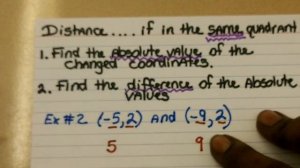 Distance.... if in the same quadrant
1. Find the absolute value of the
changed coordinates.
2. Find the difference of the Absolute
values
Ex #2 (-5,2) AND (-9,2)
5 9